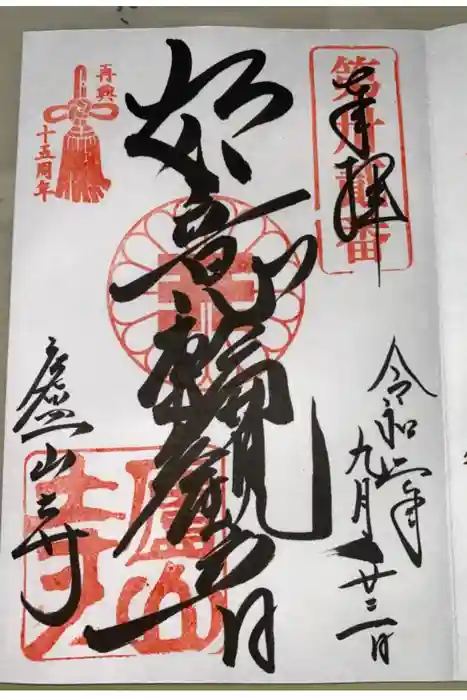 奉拝
第卅番
令和二年
九月廿三日
如意輪観音
再興
十五周年
廬山寺
廬山寺